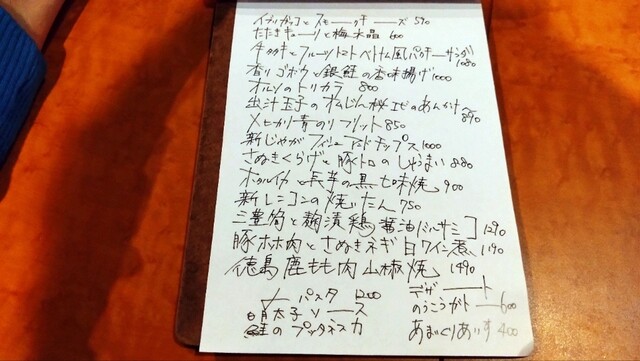 イブリガッコとスモークチーズ 590
たたきキューリと梅水晶 600
牛タタキとフルーツトマト ベトナム風パクチーサラダ 1080
香りゴボウと銀鮭の香味揚げ 1000
オルソのトリカラ 800
出汁玉子のオムレツ 桜エビのあんかけ 890
メヒカリ青のりフリット 850
新じゃがフィッシュアンドチップス 1000
さぬきくらげと豚トロのしゅうまい 880
ホタルイカと長芋の黒七味焼 900
新レンコンの焼 750
三豊筍と麹漬鶏 醤油バルサミコ 1290
豚ホホ肉とさぬきネギ 白ワイン煮 1190
徳島鹿もも肉 山椒焼 1490
パスタ 1200
明太子ソース
鮭のプッタネスカ
デザート
のうこうガトー 600
あまぐりあいす 400